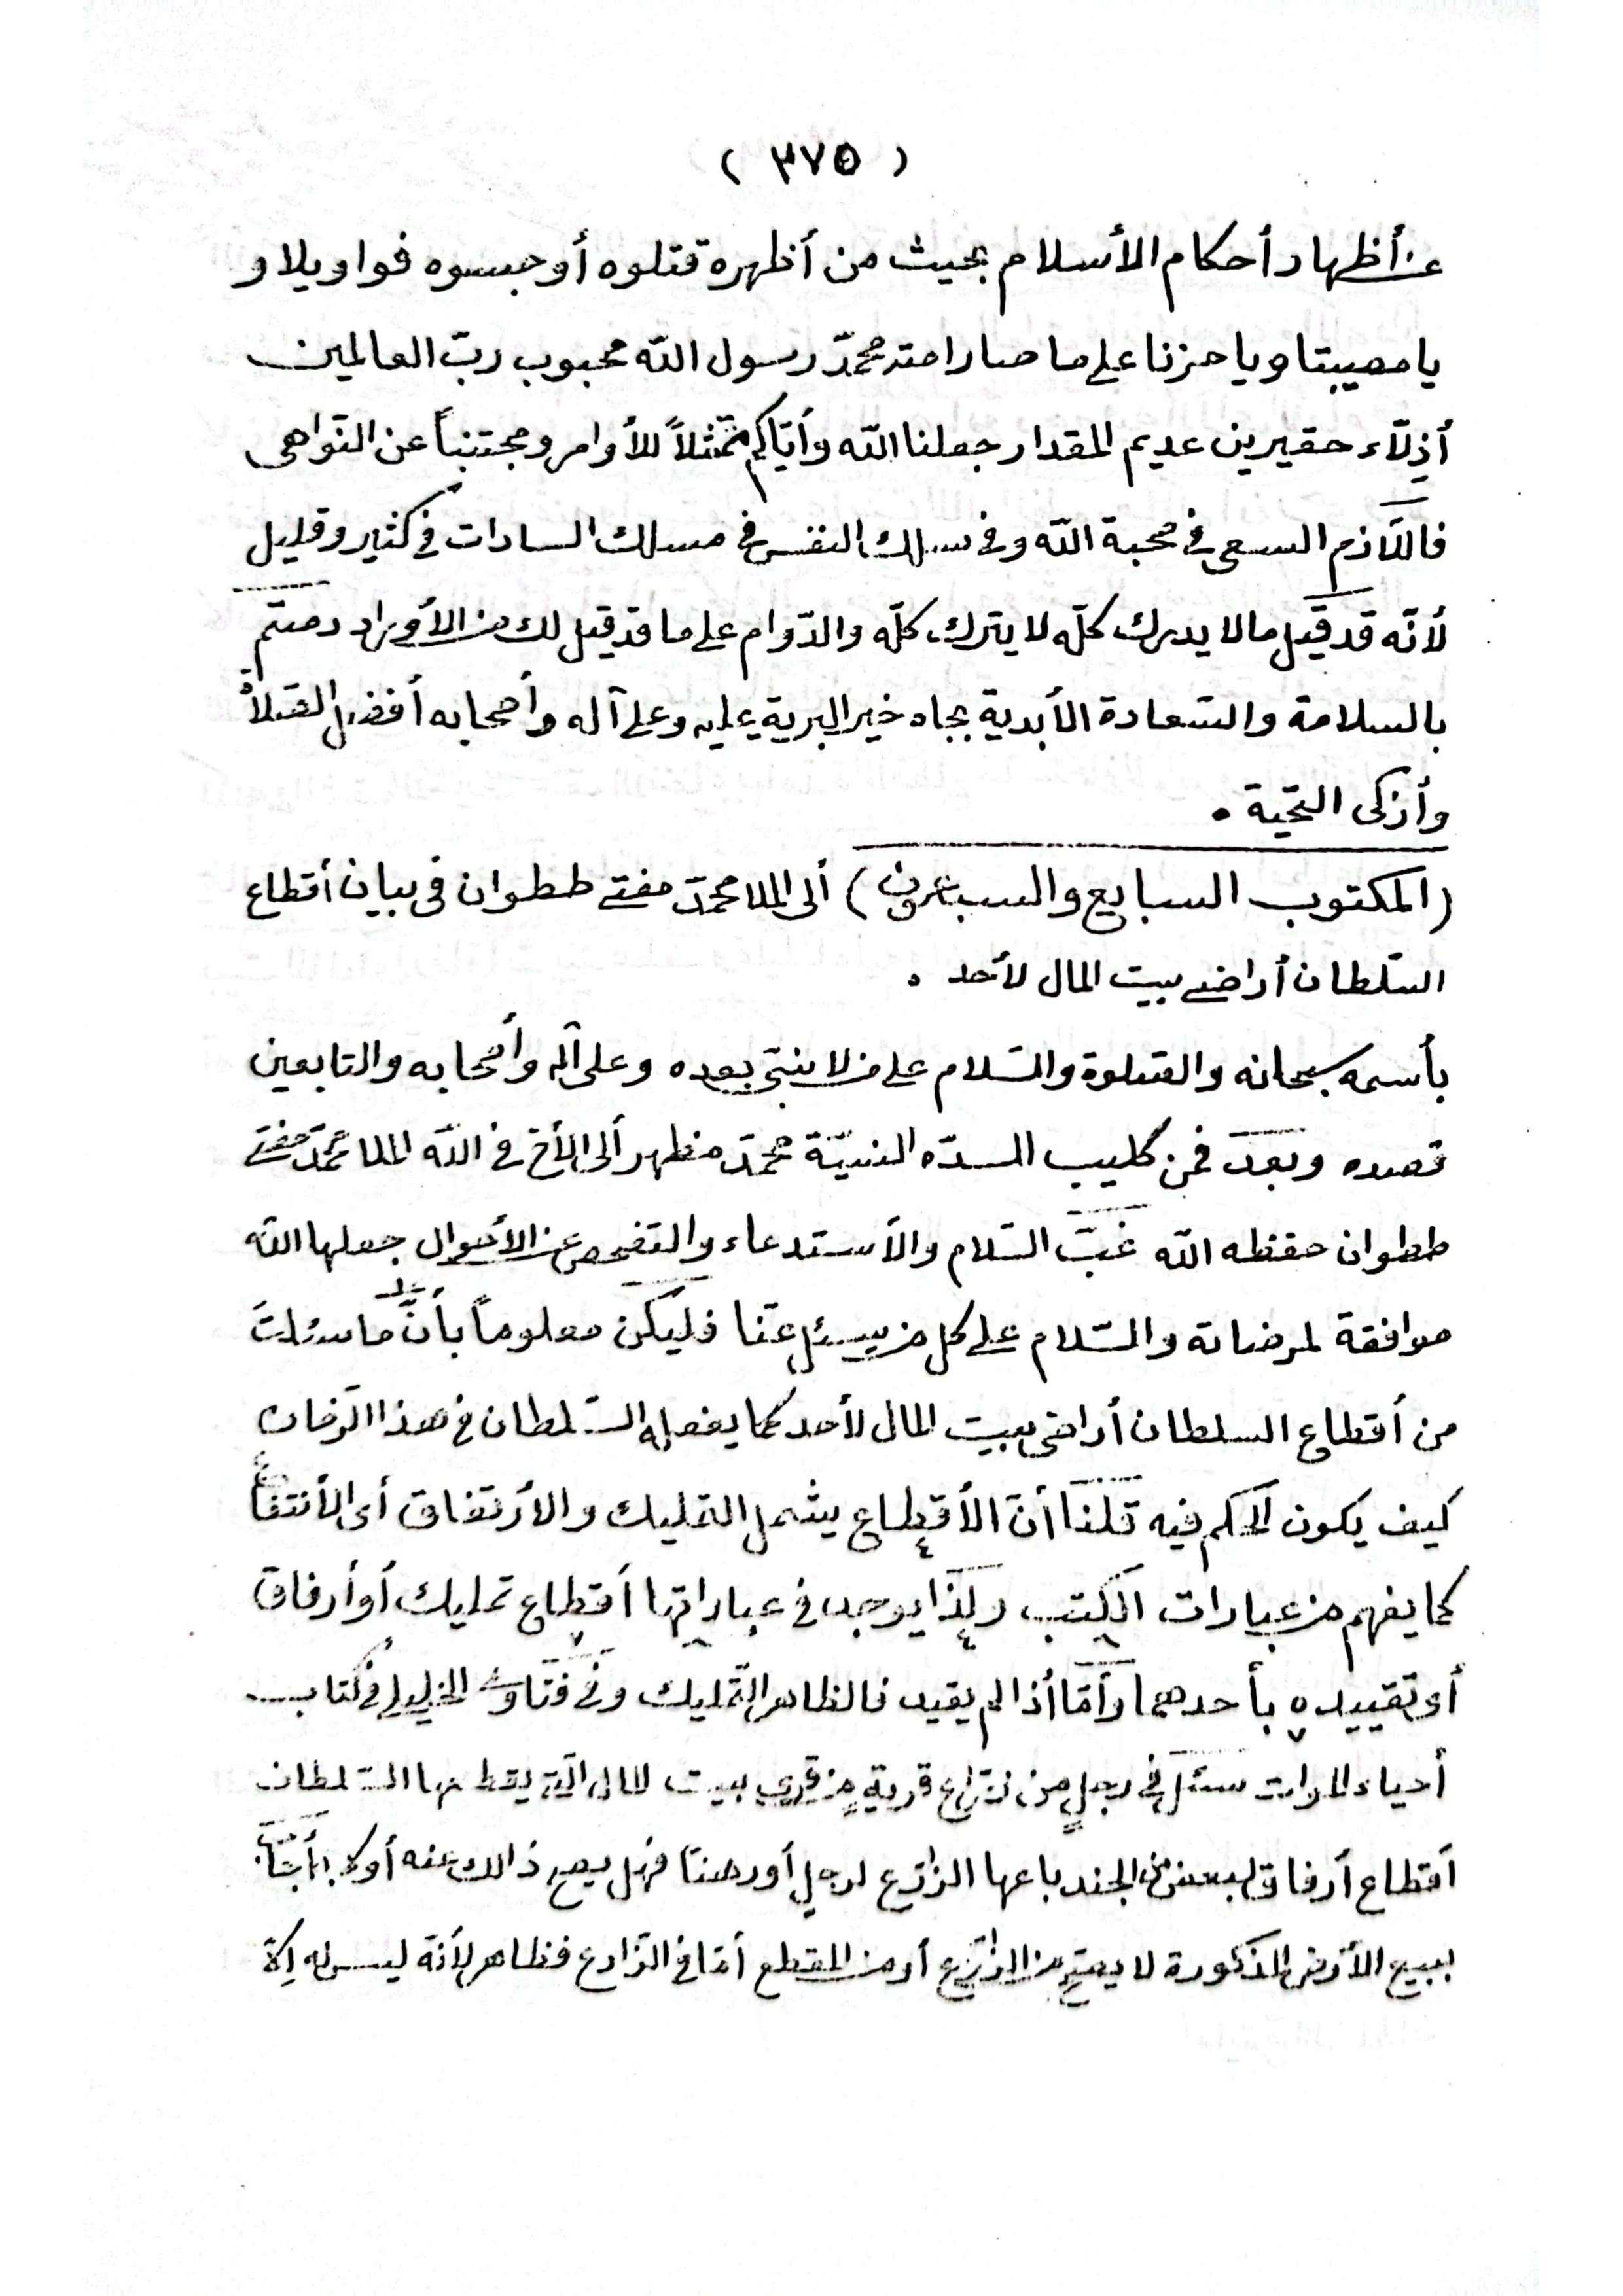 ( ٣٧٥ )
عن أظهار أحكام الأسلام بحيث من أظهره قتلوه أو حبسوه فواويلا و
يا مصيبتا ويا حزنا على ما صار امته محمّد رسول الله محبوب ربّ العالمين
أذِلّاء حقيرين عديم المقدار جعلنا الله وأيّاكم ممتثلاً للأوامر ومجتنباً عن النّواهى
فاللّازم السعى فى محبة الله وفى سلك النفس فى مسلك السادات فى كثير وقليل
لأنّه قد قيل مالا يدرك كلّه لا يترك كلّه والدّوام على ما قد قيل لك من الأوراد دمتم
بالسلامة والسّعادة الأبدية بجاه خير البرية عليه وعلى آله وأصحابه أفضل الصّلاة
وأزكى التحّية .
(المكتوب السابع والسبعون) ألى الملا محمّد مفتى طـطـوان فى بيان أقطاع
السّلطان أراضى بيت المال لأحد .
بأسمه سبحانه والصّلوة والسّلام على من لا نبىّ بعده وعلى آله وأصحابه والتابعين
قصده وبعد فمن كليب السدّه السنيّة محمّد مظهر ألى الأخ فى الله الملا محمّد مفتى
ططوان حفظه الله غبّ السّلام والأستدعاء والتفحص عن الأحوال جعلها الله
موافقة لمرضاته والسّلام على كل من يسئل عنّا فليكن معلوماً بأنّ ما سئلتَ
من أقطاع السلطان أراضى بيت المال لأحد كما يفعله السّلطان فى هذا الزمان
كيف يكون الحكم فيه قلنا أنّ الأقطاع يشمل التمليك والأرتفاق أى الأنتفاع
كما يفهم من عبارات الكتب ولذا يوجد فى عباراتها أقطاع تمليك أو أرفاق
أى تقييده بأحدهما وأمّا أذا لم يقيد فالظاهر التّمليك وفى فتاوى الخليلى فى كتاب
أحياء الموات سئل فى رجلٍ من زرّاع قريةٍ من قرى بيت المال الّتى يقطعها السّلطان
أقطاع أرفاق لبعض من الجند باعها الزّارع لرجل أو رهنتا فهل يصح ذالك عنه أو لا
ببيع الأرض المذكورة لا يصح من الزّارع أو من المقطع أمّا فى الزّارع فظاهر لأنّه ليس له إلّا